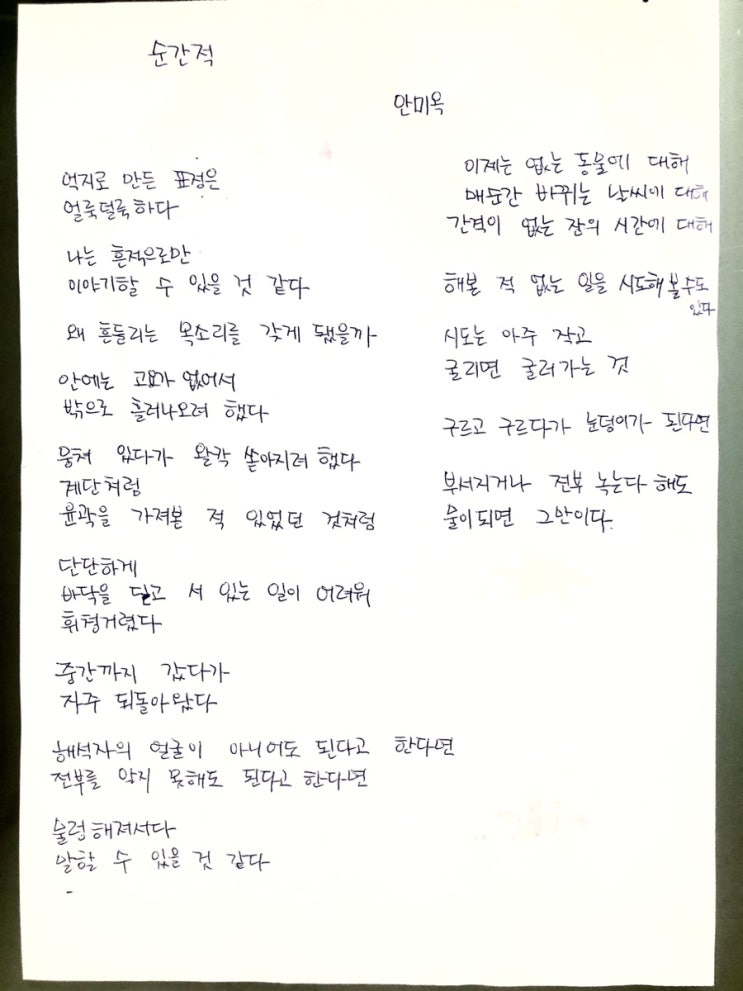 순간적
안미옥
억지로 만든 표정은
얼룩덜룩하다
나는 흔적으로만
이야기할 수 있을 것 같다
왜 흔들리는 목소리를 갖게 됐을까
안에는 고요가 없어서
밖으로 흘러나오려 했다
뭉쳐 있다가 왈칵 쏟아지려 했다
계단처럼
윤곽을 가져본 적 있었던 것처럼
단단하게
바닥을 딛고 서 있는 일이 어려워
휘청거렸다
중간까지 갔다가
자주 되돌아왔다
해석자의 얼굴이 아니어도 된다고 한다면
전부를 알지 못해도 된다고 한다면
물렁해져서다
말할 수 있을 것 같다
이제는 없는 동물에 대해
매순간 바뀌는 날씨에 대해
간격이 없는 잔의 시간에 대해
해본 적 없는 일을 시도해 볼 수도
있다
시도는 아주 작고
굴리면 굴러가는 것
구르고 구르다가 눈덩이가 된다면
부서지거나 전부 녹는다 해도
물이되면 그만이다.